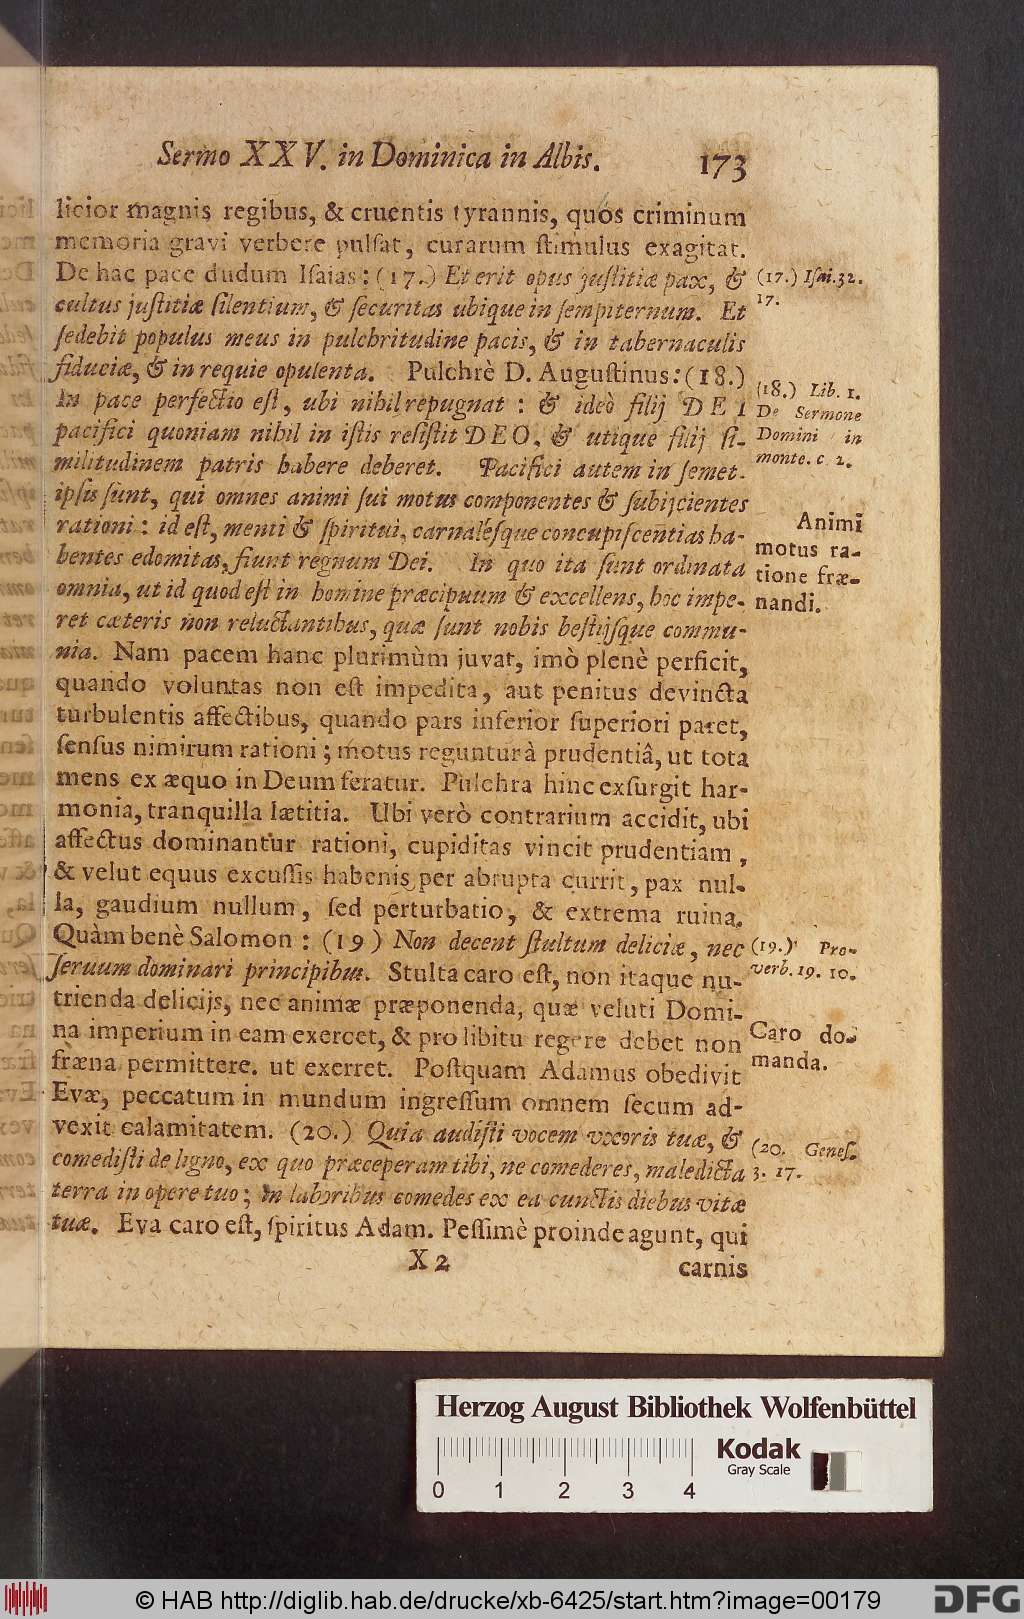 Sermo XXV. in Dominica in Albis. 173
licior magnis regibus, & cruentis tyrannis, quos criminum
memoria gravi verbere pulſat, curarum ſtimulus exagitat.
De hac pace dudum Iſaias: (17.) Et erit opus juſtitiæ pax, &
cultus juſtitiæ ſilentium, & ſecuritas ubique in ſempiternum. Et
ſedebit populus meus in pulchritudine pacis, & in tabernaculis
fiduciæ, & in requie opulenta. Pulchrè D. Auguſtinus: (18.)
In pace perfectio eſt, ubi nihil repugnat : & ideò filij DEI
pacifici quoniam nihil in iſtis reſiſtit DEO, & utique filij ſi-
militudinem patris habere deberet. Pacifici autem in ſemet-
ipſis ſunt, qui omnes animi ſui motus componentes & ſubijcientes
rationi : id eſt, menti & ſpiritui, carnaléſque concupiſcentias ha-
bentes edomitas, fiunt regnum Dei. In quo ita ſunt ordinata
omnia, ut id quod eſt in homine præcipuum & excellens, hoc impe-
ret cæteris non reluctantibus, quæ ſunt nobis beſtijſque commu-
nia. Nam pacem hanc plurimùm juvat, imò plenè perficit,
quando voluntas non eſt impedita, aut penitus devincta
turbulentis affectibus, quando pars inferior ſuperiori paret,
ſenſus nimirum rationi ; motus reguntur à prudentiâ, ut tota
mens ex æquo in Deum feratur. Pulchra hinc exſurgit har-
monia, tranquilla lætitia. Ubi verò contrarium accidit, ubi
affectus dominantur rationi, cupiditas vincit prudentiam,
& velut equus excuſſis habenis per abrupta currit, pax nul-
la, gaudium nullum, ſed perturbatio, & extrema ruina.
Quàm benè Salomon : (19) Non decent ſtultum deliciæ, nec
ſeruum dominari principibus. Stulta caro eſt, non itaque nu-
trienda delicijs, nec animæ præponenda, quæ veluti Domi-
na imperium in eam exercet, & pro libitu regere debet non
fræna permittere. ut exerret. Poſtquam Adamus obedivit
Evæ, peccatum in mundum ingreſſum omnem ſecum ad-
vexit calamitatem. (20.) Quia audiſti vocem uxoris tuæ, &
comediſti de ligno, ex quo præceperam tibi, ne comederes, maledicta
terra in opere tuo ; in laboribus comedes ex ea cunctis diebus vitæ
tuæ. Eva caro eſt, ſpiritus Adam. Peſſimè proinde agunt, qui
X 2 carnis
(17.) Iſai. 32.
17.
(18.) Lib. 1.
De Sermone
Domini in
monte. c. 2.
Animi
motus ra-
tione fræ-
nandi.
(19.) Pro-
verb. 19. 10.
Caro do-
manda.
(20. Geneſ.
3. 17.
Herzog August Bibliothek Wolfenbüttel
Kodak
Gray Scale
0 1 2 3 4
© HAB http://diglib.hab.de/drucke/xb-6425/start.htm?image=00179
DFG